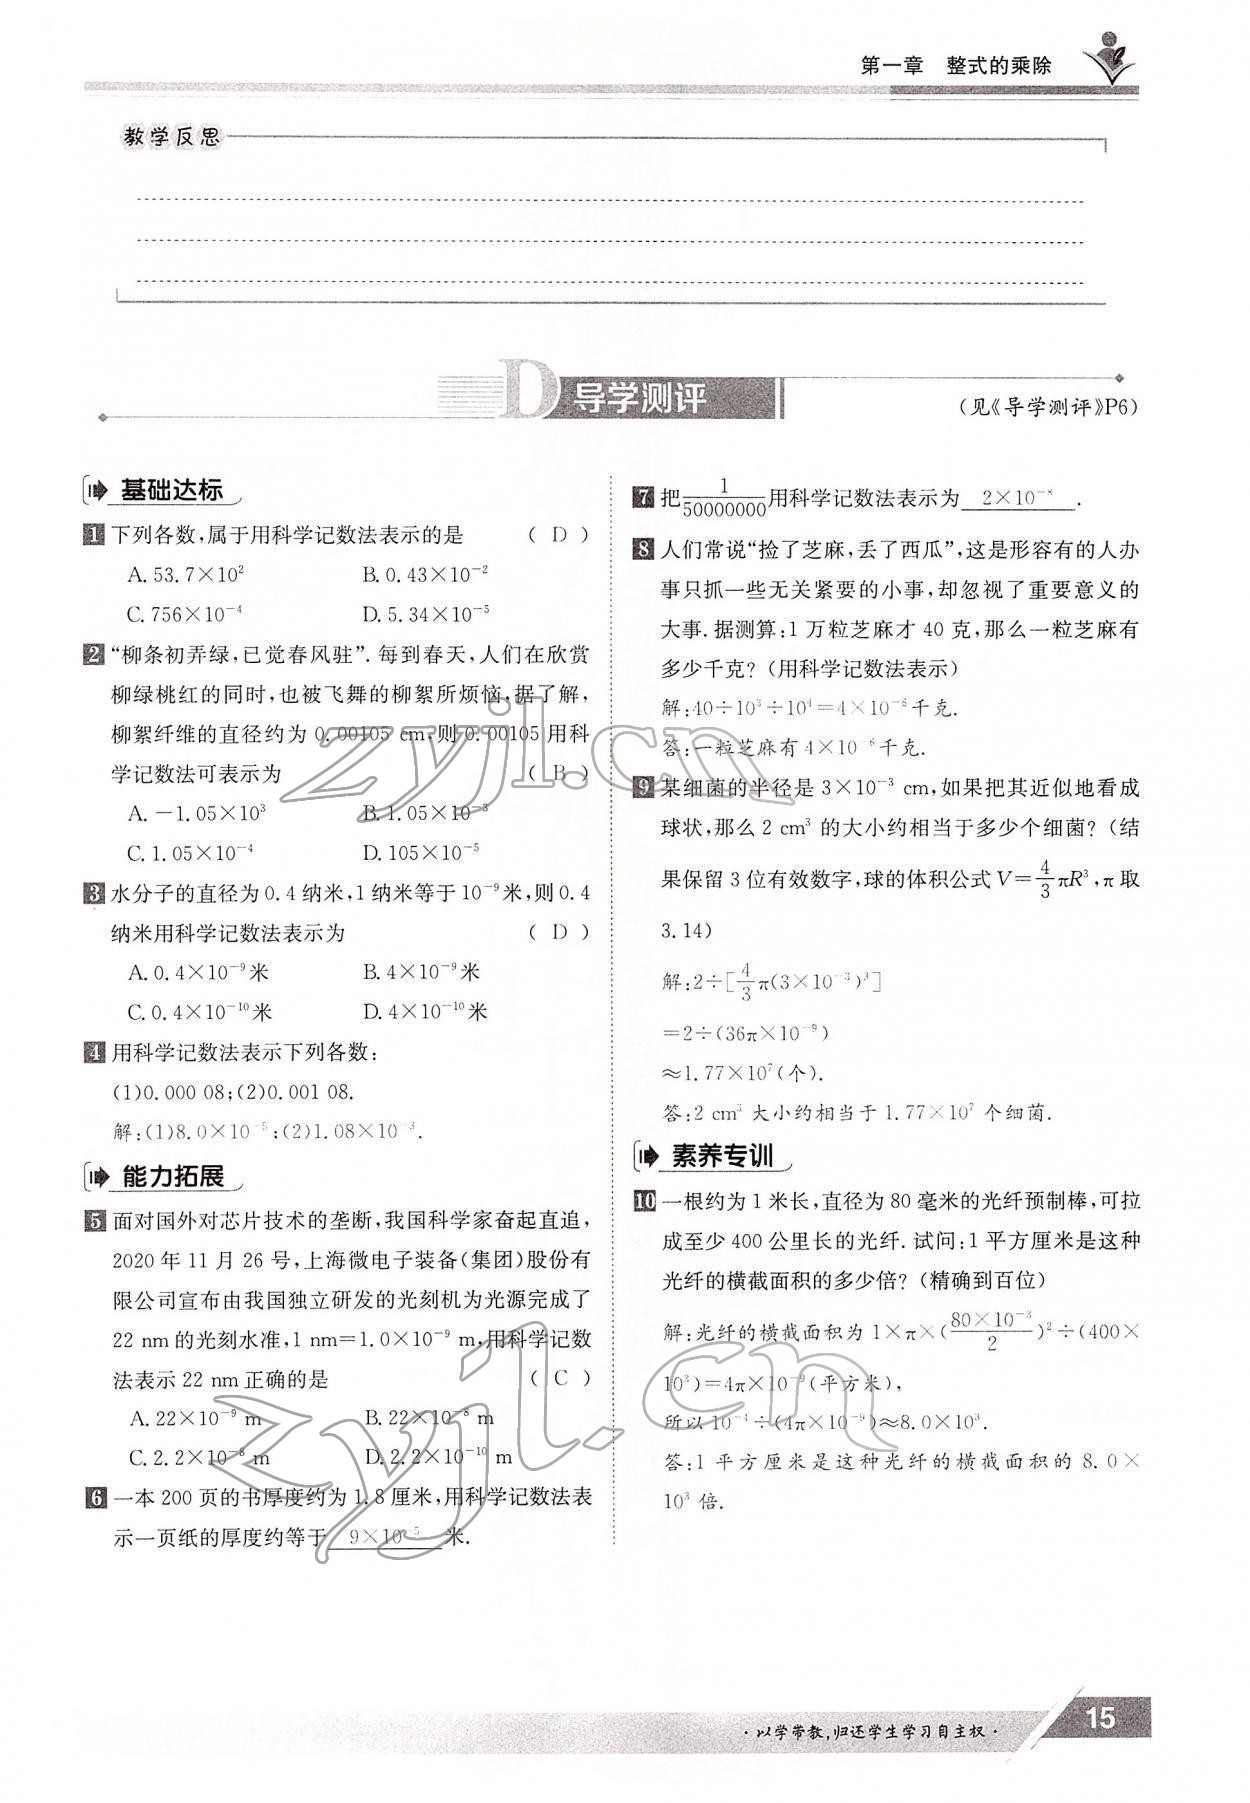 第一章 整式的乘除
教学反思
D 导学测评
(见《导学测评》P6)
基础达标
1 下列各数,属于用科学记数法表示的是 ( D )
A. 53.7×10² B. 0.43×10⁻²
C. 756×10⁻⁴ D. 5.34×10⁻⁵
2 “柳条初弄绿,已觉春风驻”. 每到春天,人们在欣赏
柳绿桃红的同时,也被飞舞的柳絮所烦恼,据了解,
柳絮纤维的直径约为 0.00105 cm,则 0.00105 用科
学记数法可表示为 ( B )
A. −1.05×10³ B. 1.05×10⁻³
C. 1.05×10⁻⁴ D. 105×10⁻⁵
3 水分子的直径为 0.4 纳米,1 纳米等于 10⁻⁹ 米,则 0.4
纳米用科学记数法表示为 ( D )
A. 0.4×10⁻⁹ 米 B. 4×10⁻⁹ 米
C. 0.4×10⁻¹⁰ 米 D. 4×10⁻¹⁰ 米
4 用科学记数法表示下列各数:
(1)0.000 08;(2)0.001 08.
解:(1)8.0×10⁻⁵;(2)1.08×10⁻³.
能力拓展
5 面对国外对芯片技术的垄断,我国科学家奋起直追,
2020 年 11 月 26 号,上海微电子装备(集团)股份有
限公司宣布由我国独立研发的光刻机为光源完成了
22 nm 的光刻水准,1 nm=1.0×10⁻⁹ m,用科学记数
法表示 22 nm 正确的是 ( C )
A. 22×10⁻⁹ m B. 22×10⁻⁸ m
C. 2.2×10⁻⁸ m D. 2.2×10⁻¹⁰ m
6 一本 200 页的书厚度约为 1.8 厘米,用科学记数法表
示一页纸的厚度约等于 9×10⁻⁵ 米.
7 把 1/50000000 用科学记数法表示为 2×10⁻⁸ .
8 人们常说“捡了芝麻,丢了西瓜”,这是形容有的人办
事只抓一些无关紧要的小事,却忽视了重要意义的
大事. 据测算:1 万粒芝麻才 40 克,那么一粒芝麻有
多少千克?(用科学记数法表示)
解:40÷10³÷10⁴=4×10⁻⁶ 千克.
答:一粒芝麻有 4×10⁻⁶ 千克.
9 某细菌的半径是 3×10⁻³ cm,如果把其近似地看成
球状,那么 2 cm³ 的大小约相当于多少个细菌?(结
果保留 3 位有效数字,球的体积公式 V=4/3πR³,π 取
3.14)
解:2÷[4/3π(3×10⁻³)³]
=2÷(36π×10⁻⁹)
≈1.77×10⁷(个).
答:2 cm³ 大小约相当于 1.77×10⁷ 个细菌.
素养专训
10 一根约为 1 米长,直径为 80 毫米的光纤预制棒,可拉
成至少 400 公里长的光纤. 试问:1 平方厘米是这种
光纤的横截面积的多少倍?(精确到百位)
解:光纤的横截面积为 1×π×(80×10⁻³/2)²÷(400×
10³)=4π×10⁻⁹(平方米),
所以 10⁻⁴÷(4π×10⁻⁹)≈8.0×10³.
答:1 平方厘米是这种光纤的横截面积的 8.0×
10³ 倍.
zyjl.cn
zyjl.cn
·以学带教,归还学生学习自主权·
15